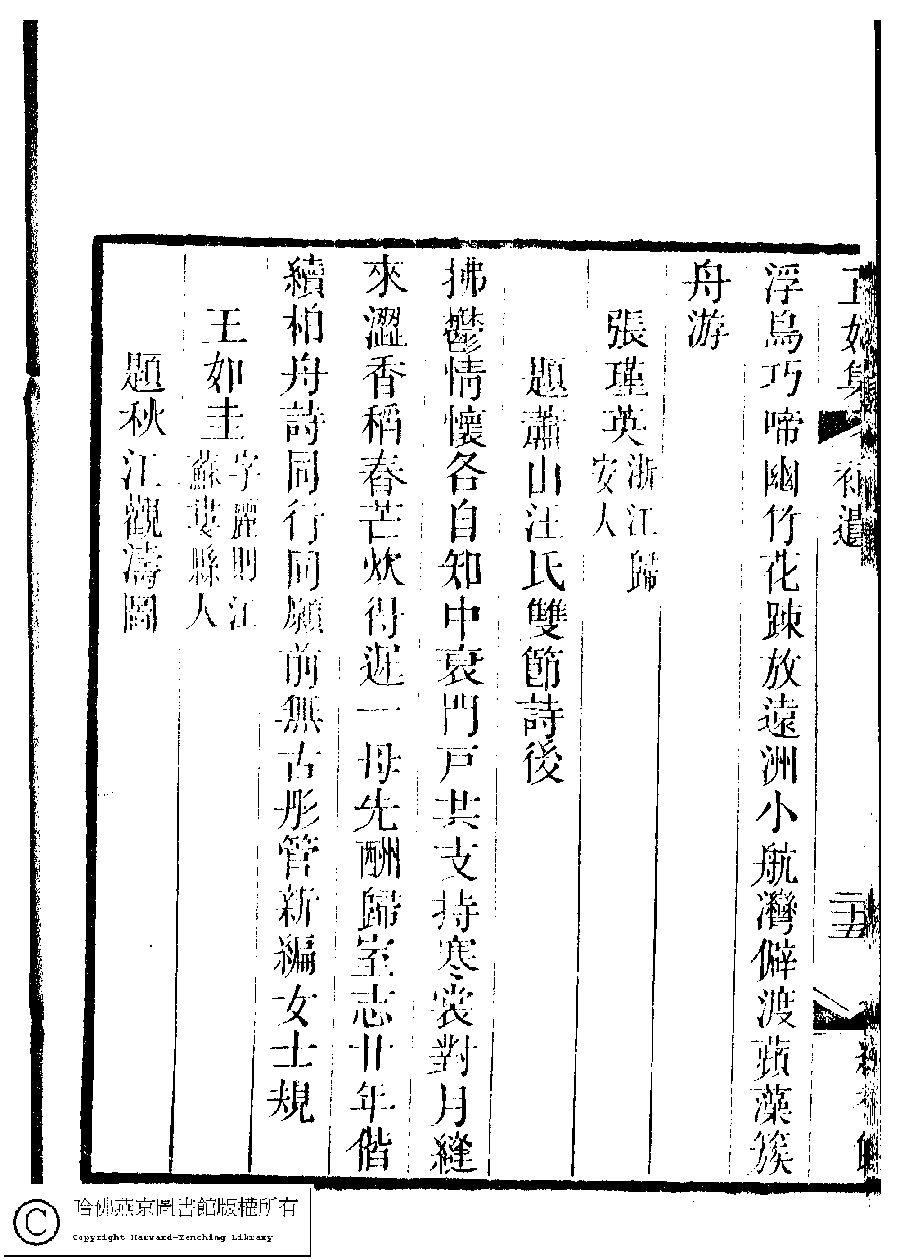 正始集 補遺 三五
浮鳥巧啼幽竹花踈放遠洲小航灣僻渡蘋藻簇
舟游
張瑾英浙江歸
安人
題蕭山汪氏雙節詩後
拂鬱情懷各自知中衰門戸共支持寒裳對月縫
來澀香稻舂芒炊得遲一母先酬歸室志廿年偕
續柏舟詩同行同願前無古彤管新編女士規
王如圭字麗則江
蘇婁縣人
題秋江觀濤圖
哈佛燕京圖書館版權所有
Copyright Harvard-Yenching Library